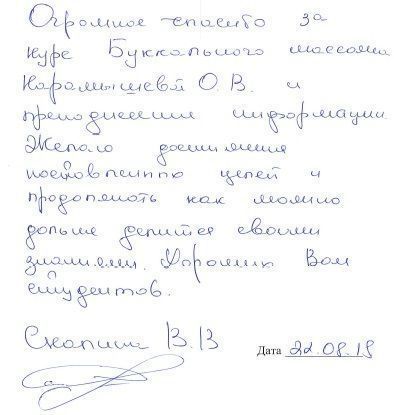 Огромное спасибо за
курс Буккального массажа
Карамышевой О.В. и
преподнесении информации.
Желаю достижения
поставленных целей и
продолжать как можно
дольше делится своими
знаниями. Хороших Вам
студентов.
Скапина В.В
Дата 22.08.18